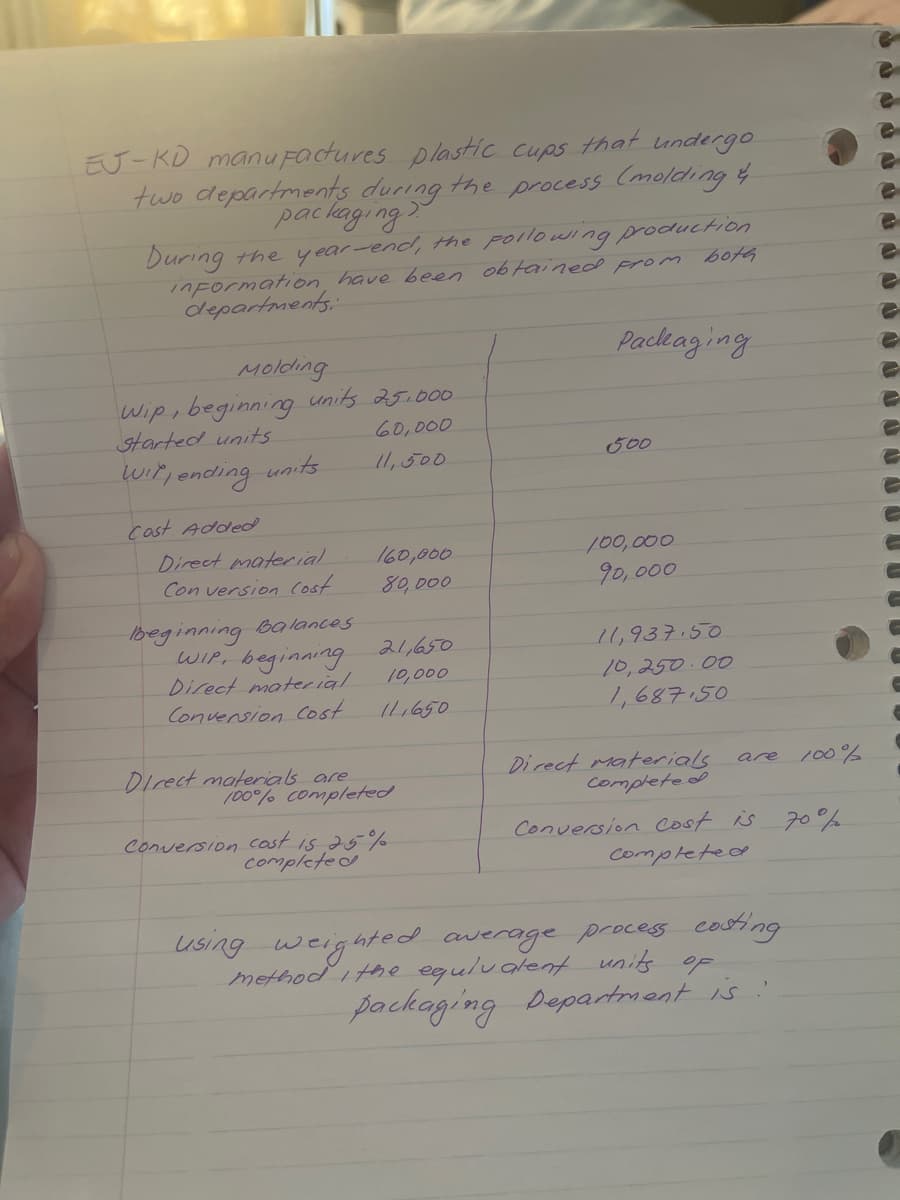 EJ-KD manufactures plastic cups that undergo
two departments during the process (molding &
packaging).
During the year-end, the following production
information have been obtained from both
departments:
Molding
WIP, beginning units 25,000
Started units 60,000
WIP, ending units 11,500
Cost Added
Direct material 160,000
Conversion Cost 80,000
beginning Balances
WIP, beginning 21,650
Direct material 10,000
Conversion Cost 11,650
Direct materials are
100% completed
Conversion cost is 25%
completed
Packaging
500
100,000
90,000
11,937.50
10,250.00
1,687.50
Direct materials are 100%
completed
Conversion cost is 70%
completed
using weighted average process costing
method, the equivalent units of
packaging Department is :